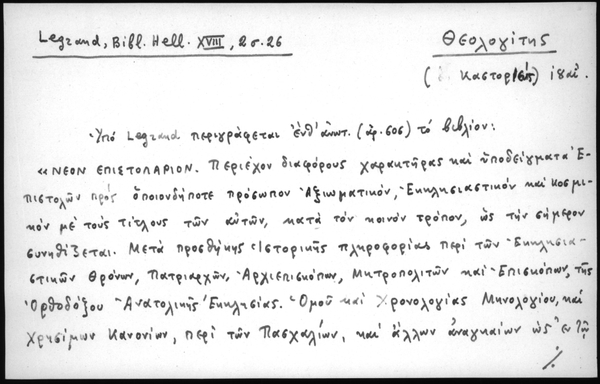 Legrand, Bibl. Hell. XVIII, 2σ. 26
Θεολογίτης
Καστορ ιηαἰ.
Ὑπό Legrand περιγράφεται ἐνθ' ἀνωτ. (ἀρ. 606) τό βιβλίον:
«ΝΕΟΝ ΕΠΙΣΤΟΛΑΡΙΟΝ. Περιέχον διαφόρους χαρακτῆρας καί ὑποδείγματα Ἐ-
πιστολῶν πρός ὁποιονδήποτε πρόσωπον Ἀξιωματικόν, Ἐκκλησιαστικόν καί κοσμι-
κόν μέ τούς τίτλους τῶν αὐτῶν, κατά τόν κοινόν τρόπον, ὡς τήν σήμερον
συνηθίζεται. Μετά προσθήκης Ἱστορικῆς πληροφορίας περί τῶν Ἐκκλησια-
στικῶν Θρόνων, Πατριαρχῶν, Ἀρχιεπισκόπων, Μητροπολιτῶν καί Ἐπισκόπων, τῆς
Ὀρθοδόξου Ἀνατολικῆς Ἐκκλησίας. Ὁμοῦ καί Χρονολογίας Μηνολογίου, καί
Χρησίμων Κανονίων, περί τῶν Πασχαλίων, καί ἄλλων ἀναγκαίων ὡς ἐν τῷ
./.